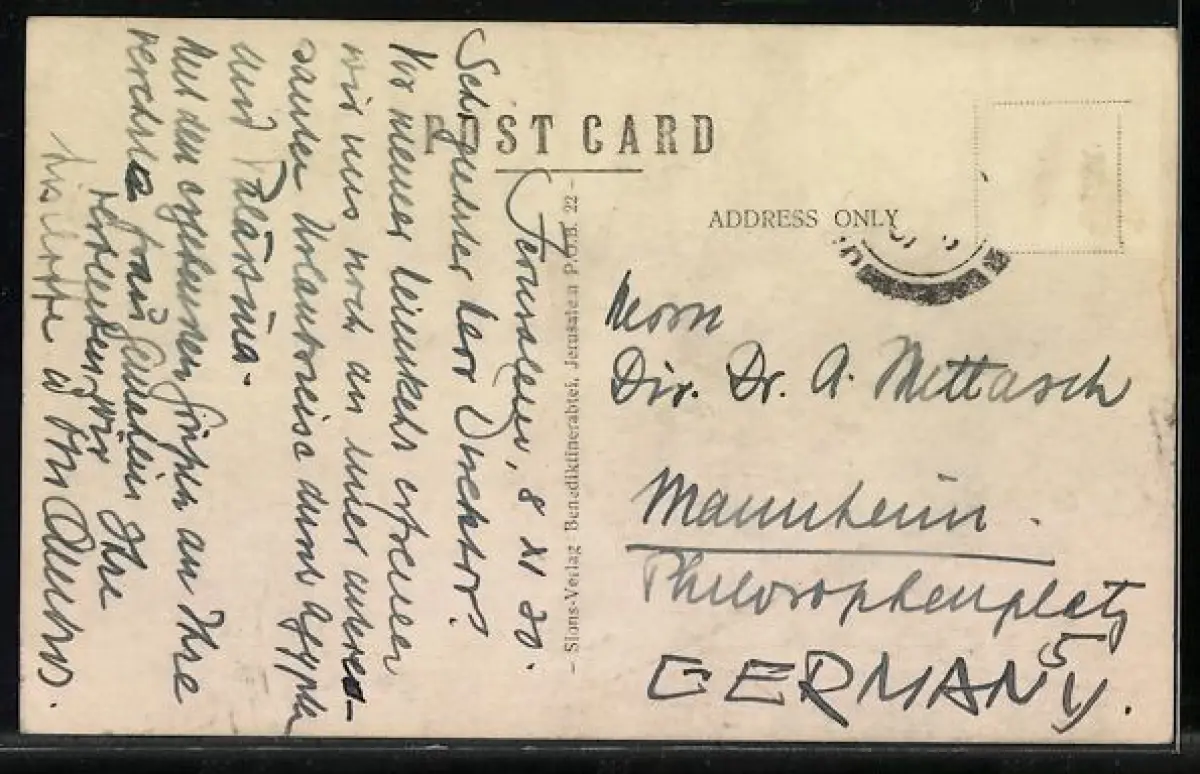 POST CARD
ADDRESS ONLY
Jerusalem, 8 XI 30.
Sehr geehrter Herr Direktor!
Vor meiner Heimkehr erfreuen
wir uns noch an einer interes-
santen Urlaubsreise durch Ägypten
und Palästina.
Mit den ergebensten Grüßen an Ihre
verehrte Frau Gemahlin Ihre
Herrn
Dir. Dr. A. Mittasch
Mannheim.
Philosophenplatz
5
GERMANY.
- Sions-Verlag Benediktinerabtei, Jerusalem P.O.B. 22 -